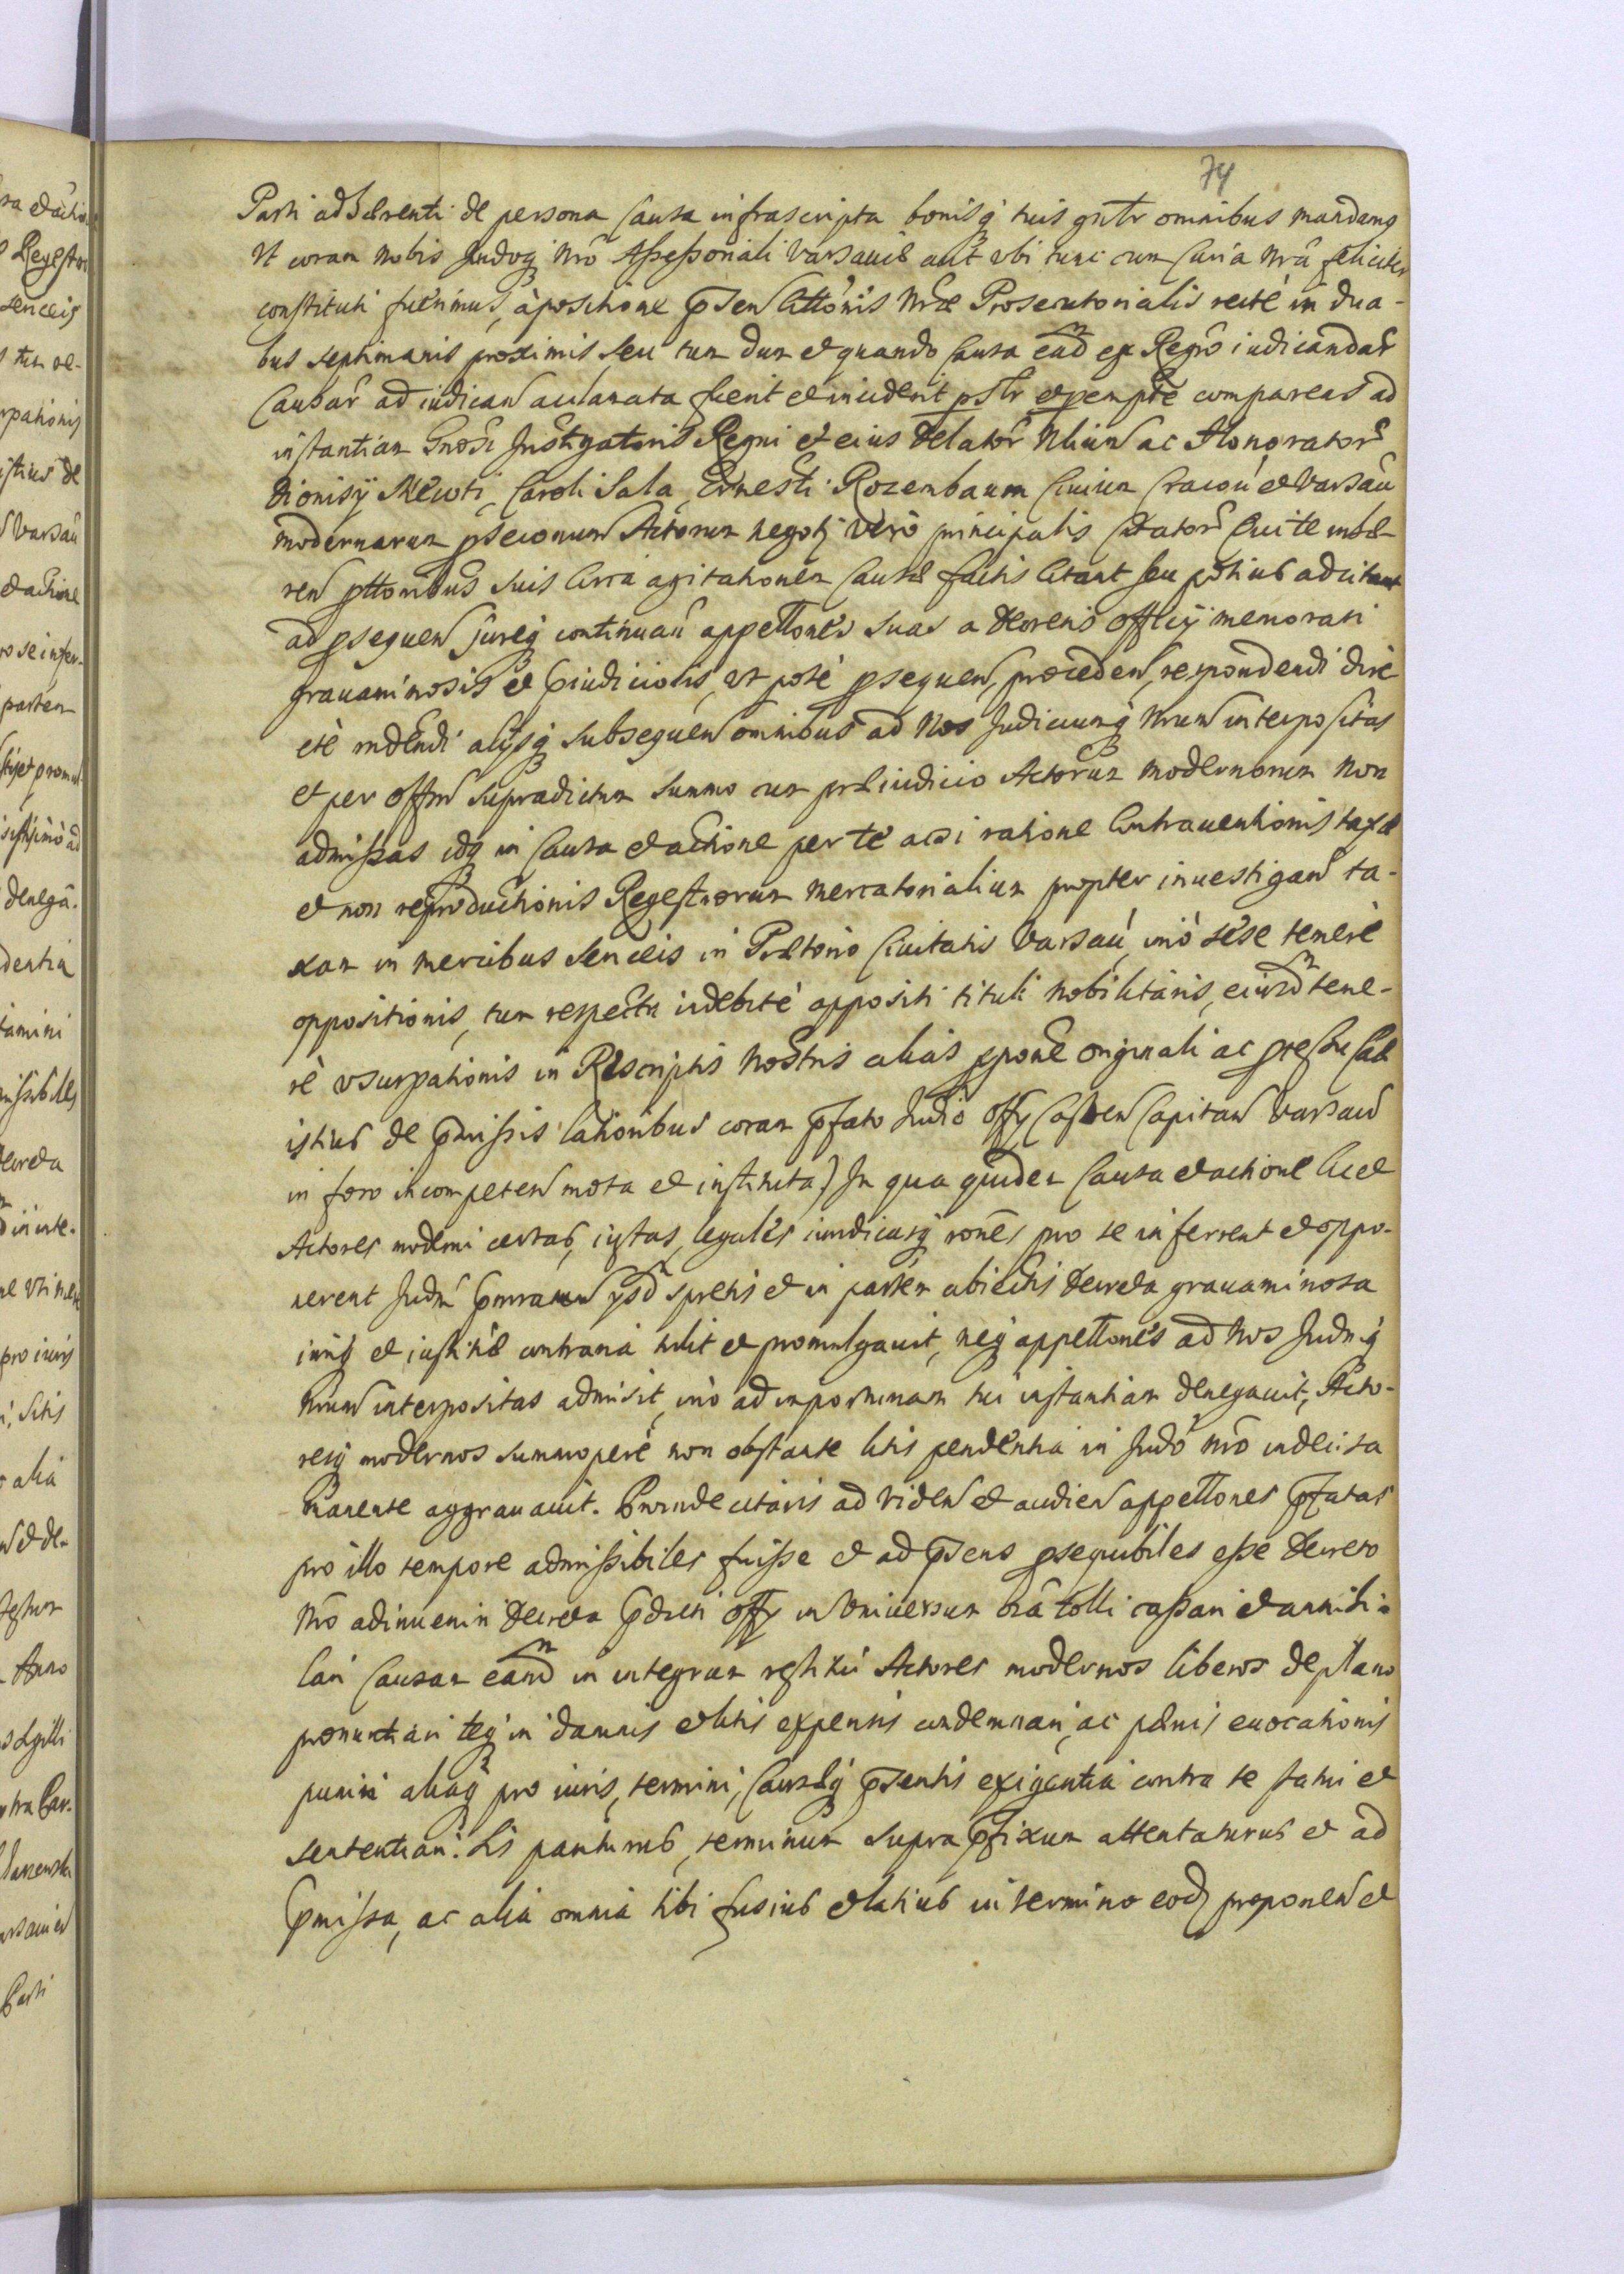 74
Parti adhaerenti de persona causa infrascripta bonisq tuis gnlr omnibus mandamq
Vt coram nobis Judioq nro Assessoriali Varsauiae aut vbi tunc cum Curia nra feliciter
constituti fuerimus, à positione psen Cittonis nrae Prosecutorialis recté in dua-
bus septimanis proximis seu tum dum et quando causa ead ex Regro iudicandar
Causar ad iudican aclamata fuerit et inciderit pslr et perempte compareas ad
instantiam Gnosi Instigatoris Regni et eius Delator Nlium ac Honorator
Dionisij Mewti, Caroli Sala, Ernesti Rozenbaum Ciuium Cracou et Varsau
modernarum psecionum Actorum negotj veró principalis Citator qui te inhae-
ren pttionibus suis Circa agitationem causae factis Citant seu potius adcitant
ad psequen jureq continuan appettones suas a Decretis Officij memorati
grauaminosis et piudiciosis, vt poté psequen, proceden, respondendi dire
cté rndendi alijsq subsequen omnibus ad Nos Judiciumq nrum interpositas
et per offm supradictum summo cum praeiudicio Actorum modernorum non
admissas idq in causa et actione per te acsi ratione Contrauentionis taxae
et non reproductionis Regestrorum mercatorialium propter inuestigan ta-
xam in mercibus sericeis in Praetorio Ciuitatis Varsau, imò sese temerè
oppositionis, tum respectu indebité appositi tituli nobilitaris, eiusd teme-
ré vsurpationis in Rescriptis nostris alias pponé originali ac ptextu cau
istius de pmissis lationibus coram pfato Judio offy Castren Capitan Varsaui
in foro incompeten mota et instituta) In qua quidem causa et actione licet
Actores moderni certas, iustas, legales iuridicasq rones pro se inferrent et oppo-
nerent Judm pmraum ysd spretis et in partem abiectis Decreta grauaminosa
iuriq et iustitiae contraria tulit et promulgauit, neq appettones ad Nos Judmq
nrum interpositas admisit, imò ad importunam tui instantiam denegauit, Acto-
resq modernos summoperè non obstante litis pendentia in Judo nro indecisa
manente aggrauauit. Proinde citaris ad viden et audien appettones pfatas
pro illo tempore admissibiles fuisse et ad psens psequibiles esse Decreto
nro adinueniri Decreta pdicti offy in vniuersum oia tolli cassari et annihi-
lari Causam eand in integrum restitui Actores modernos liberos de plano
pronuntiari teq in damnis et litis expensis condemnari, ac paenis euocationis
puniri aliaq pro iuris, termini, causaeq psentis exigentia contra te statui et
sententiari. Sis pariturus, terminum supra pfixum attentaturus et ad
pmissa, ac alia omnia tibi fusius et latius in termino eod proponen et